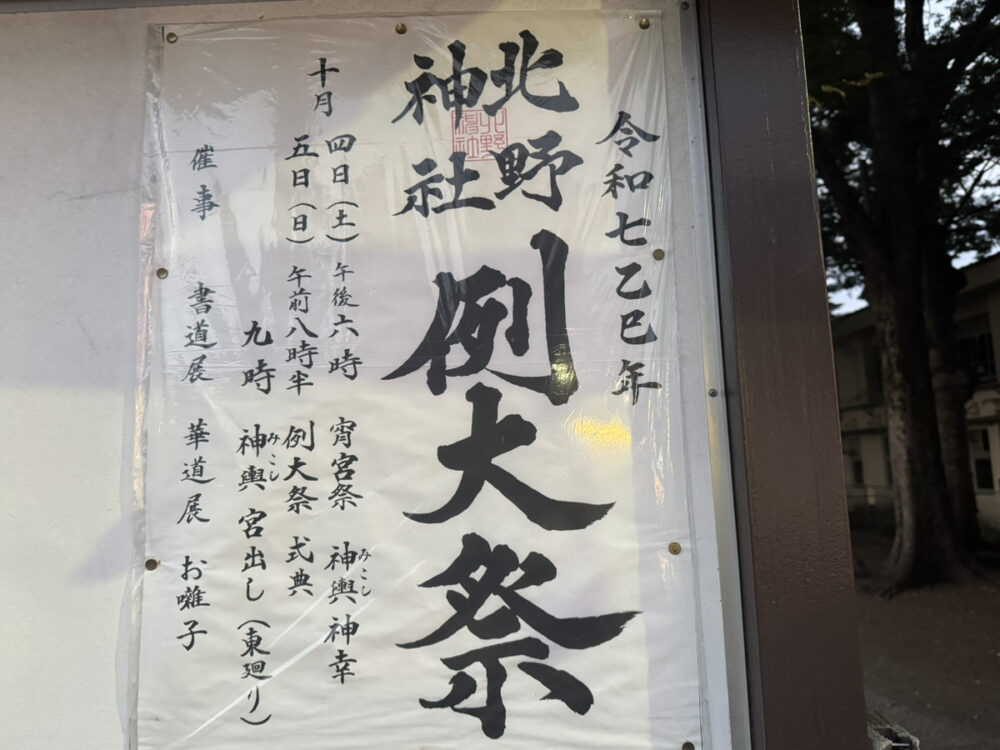 令和七乙巳年
北野
神社
例大祭
北野
神社
十月
四日(土) 午後六時 宵宮祭 神輿神幸
みこし
五日(日) 午前八時半 例大祭 式典
九時 神輿 宮出し(東廻り)
みこし
催事 書道展 華道展 お囃子